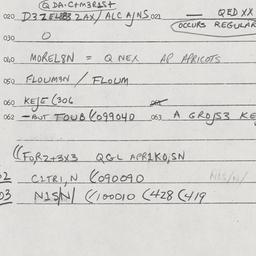 Q DA·C+M3R1S+
020 D3ZELBB ZAX/ALC AJNS 021 — QED XX
(OCCURS REGULAR
030 O
040 MOREL8N = Q NEX AP APRICOTS
050 FLOUM3N / FLOUM
060 KEJE (306
062 -AUT FOUB ((099040 063 A GROJS3 KE
((FOR2+3X3 QGL APR1KO,SN
2 C1TR1,N ((090090 N1S/N/
03 N1S/N/ ((100010 (428 (419